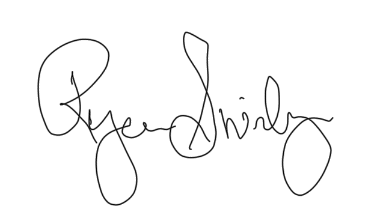 Ryan Shirley